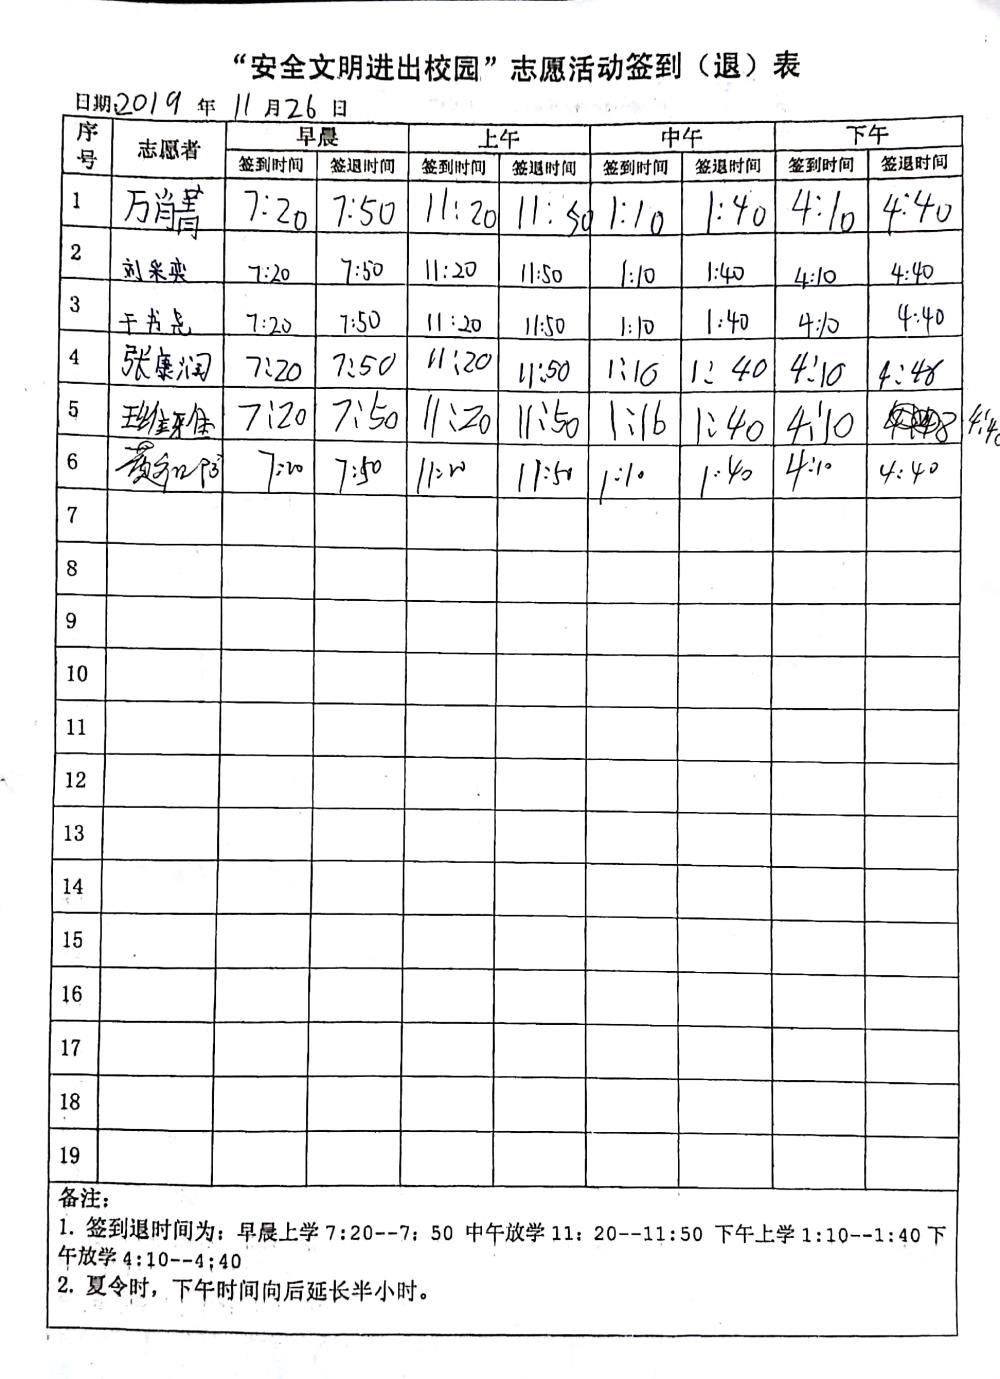 “安全文明进出校园”志愿活动签到（退）表
日期2019 年 11 月 26 日
序号 志愿者 早晨 上午 中午 下午
签到时间 签退时间 签到时间 签退时间 签到时间 签退时间 签到时间 签退时间
1 万肖菁 7:20 7:50 11:20 11:50 1:10 1:40 4:10 4:40
2 刘采奕 7:20 7:50 11:20 11:50 1:10 1:40 4:10 4:40
3 于书尧 7:20 7:50 11:20 11:50 1:10 1:40 4:10 4:40
4 张康润 7:20 7:50 11:20 11:50 1:10 1:40 4:10 4:40
5 7:20 7:50 11:20 11:50 1:10 1:40 4:10 4:40
6 7:20 7:50 11:20 11:50 1:10 1:40 4:10 4:40
7
8
9
10
11
12
13
14
15
16
17
18
19
备注：
1. 签到退时间为：早晨上学 7:20--7：50 中午放学 11：20--11:50 下午上学 1:10--1:40 下
午放学 4:10--4:40
2. 夏令时，下午时间向后延长半小时。